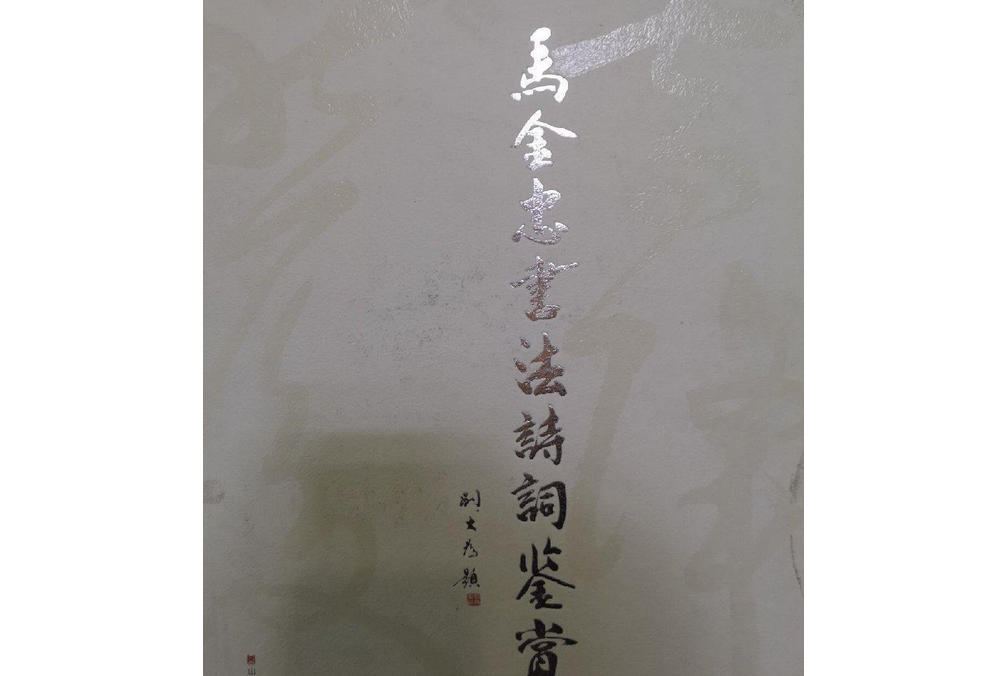 馬金忠書法詩詞鉴賞
劉大為題
山